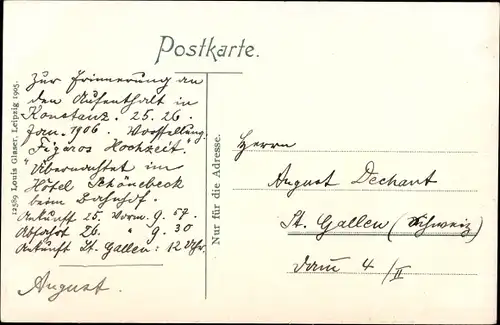 Postkarte.
Zur Erinnerung an
den Aufenthalt in
Konstanz. 25. 26.
Jan. 1906. Vorstellung
"Figaros Hochzeit."
Übernachtet im
Hôtel Schönebeck
beim Bahnhof.
Ankunft 25. Vorm. 9.57.
Abfahrt 26. " 9.30
Ankunft St. Gallen: 12 Uhr.
August.
12589 Louis Glaser, Leipzig 1905.
Nur für die Adresse.
Herrn
August Dechant
St. Gallen (Schweiz)
4/II